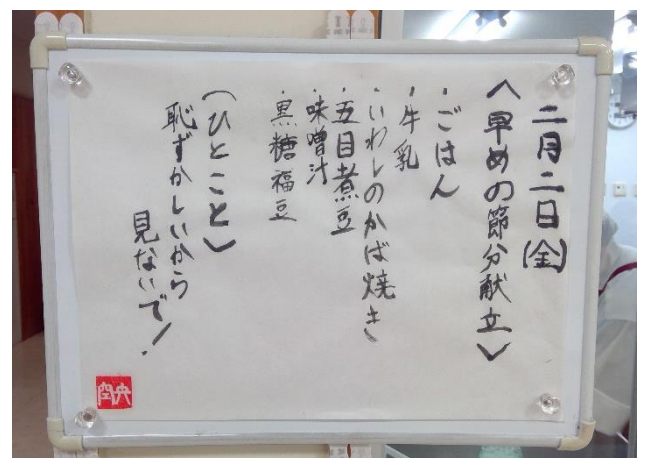 二月二日(金)
〈早めの節分献立〉
・ごはん
・牛乳
・いわしのかば焼き
・五目煮豆
・味噌汁
・黒糖福豆
(ひとこと)
恥ずかしいから
見ないで!
央空